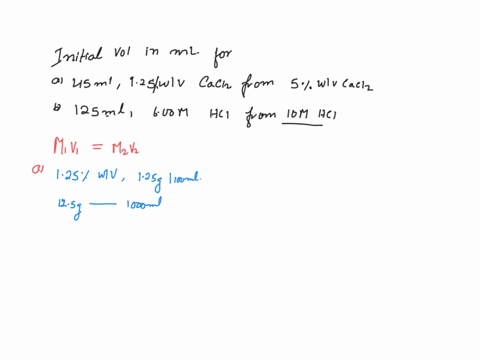 Initial vol in mL for
a) 45ml, 1.25%W/V CaCl2 from 5% W/V CaCl2
b) 125ml, 6.00M HCl from 10M HCl
M1V1 = M2V2
a) 1.25% W/V, 1.25g/100ml.
12.5g — 1000ml